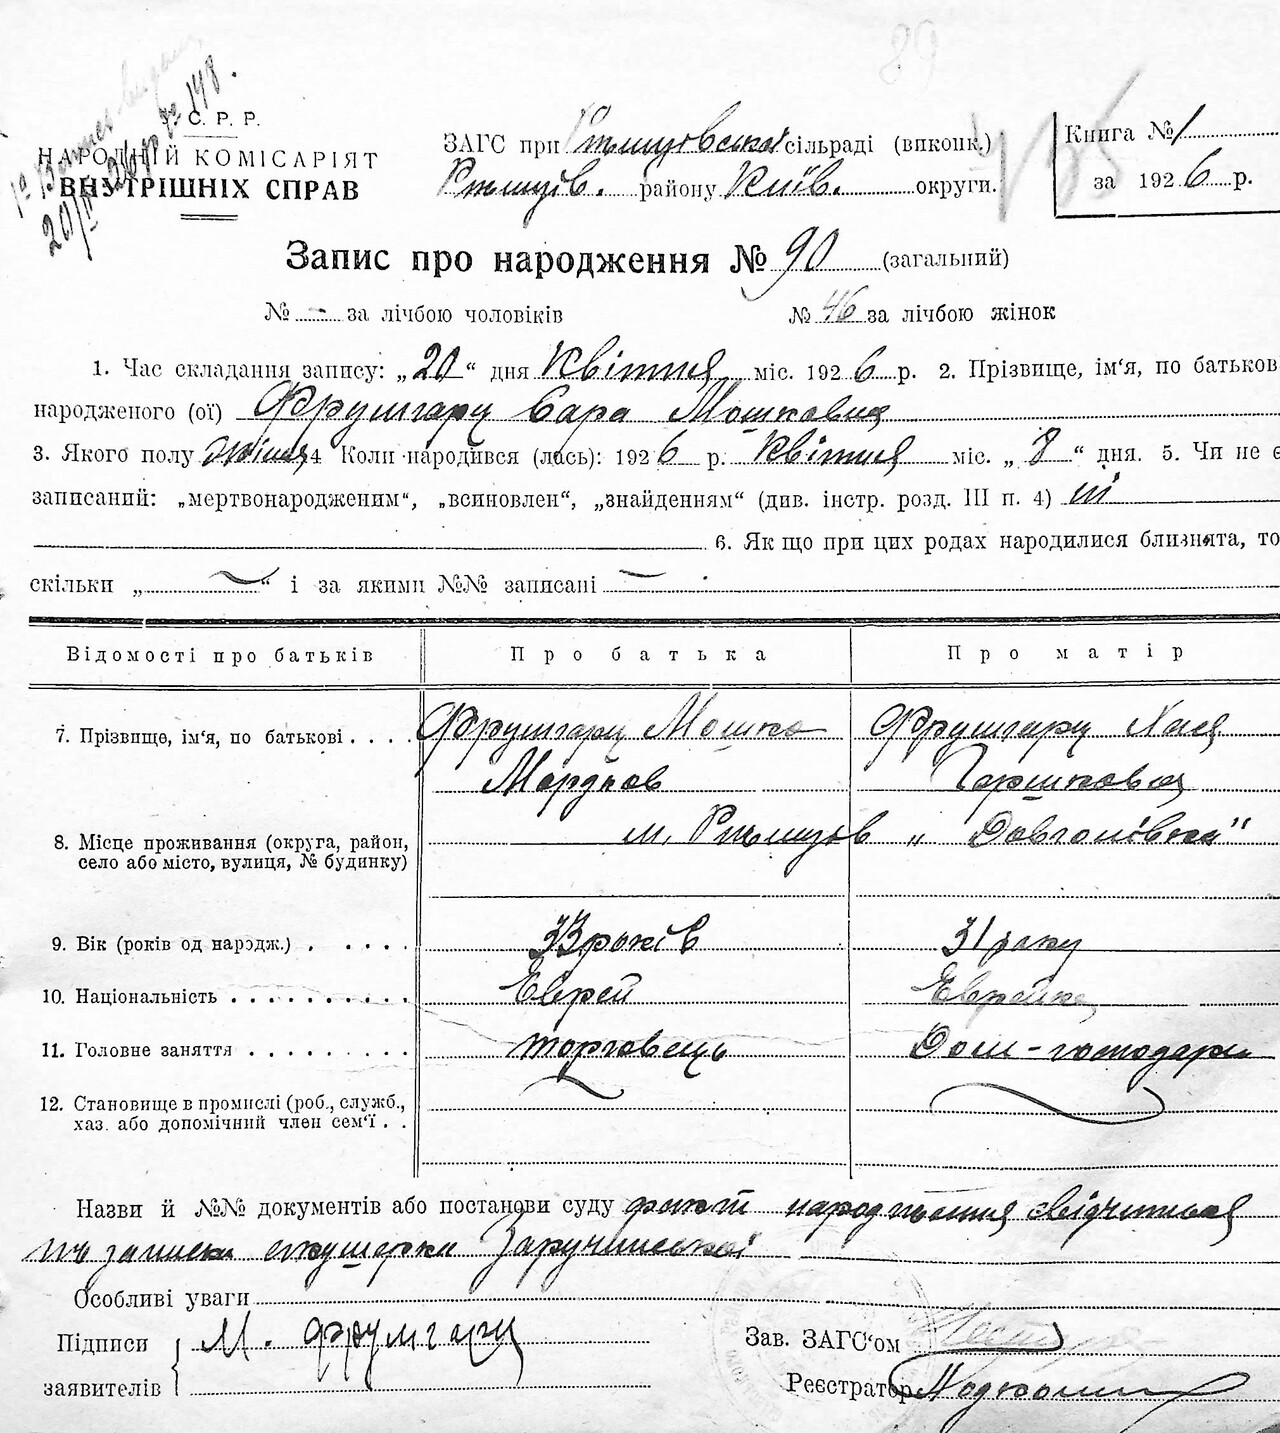 89
У. С. Р. Р.
НАРОДНІЙ КОМІСАРІЯТ
ВНУТРІШНІХ СПРАВ
ЗАГС при Ржищовській сільраді (виконк.)
Ржищів. району Київ. округи.
Книга № 1
за 1926 р.
Запис про народження № 90 (загальний)
№ - за лічбою чоловіків № 46 за лічбою жінок
1. Час складання запису: „20“ дня Квітня міс. 1926 р. 2. Прізвище, ім'я, по батьков
народженого (ої) Фрумгарц Сара Мошковна
3. Якого полу жіноч 4 Коли народився (лась): 1926 р. Квітня міс. „8“ дня. 5. Чи не є
записаний: „мертвонародженим“, „всиновлен“, „знайденням“ (див. інстр. розд. III п. 4) ні
6. Як що при цих родах народилися близнята, то
скільки „ — “ і за якими №№ записані —
Відомості про батьків Про батька Про матір
7. Прізвище, ім'я, по батькові . . . . Фрумгарц Мошко Фрумгарц Хася
Мордков Гершковна
8. Місце проживання (округа, район, м. Ржищов „Довголівка"
село або місто, вулиця, № будинку)
9. Вік (років од народж.) . . . . . 33 років 31 року
10. Національність . . . . . . . . . . Еврей Еврейка
11. Головне заняття . . . . . . . . . торговець Дом-господарка
12. Становище в промислі (роб., служб.,
хаз. або допомічний член сем'ї . .
Назви й №№ документів або постанови суду факт народження свідчиться
записки акушерки
Особливі уваги
Підписи М. Фрумгарц Зав. ЗАГС'ом
заявителів Реєстратор